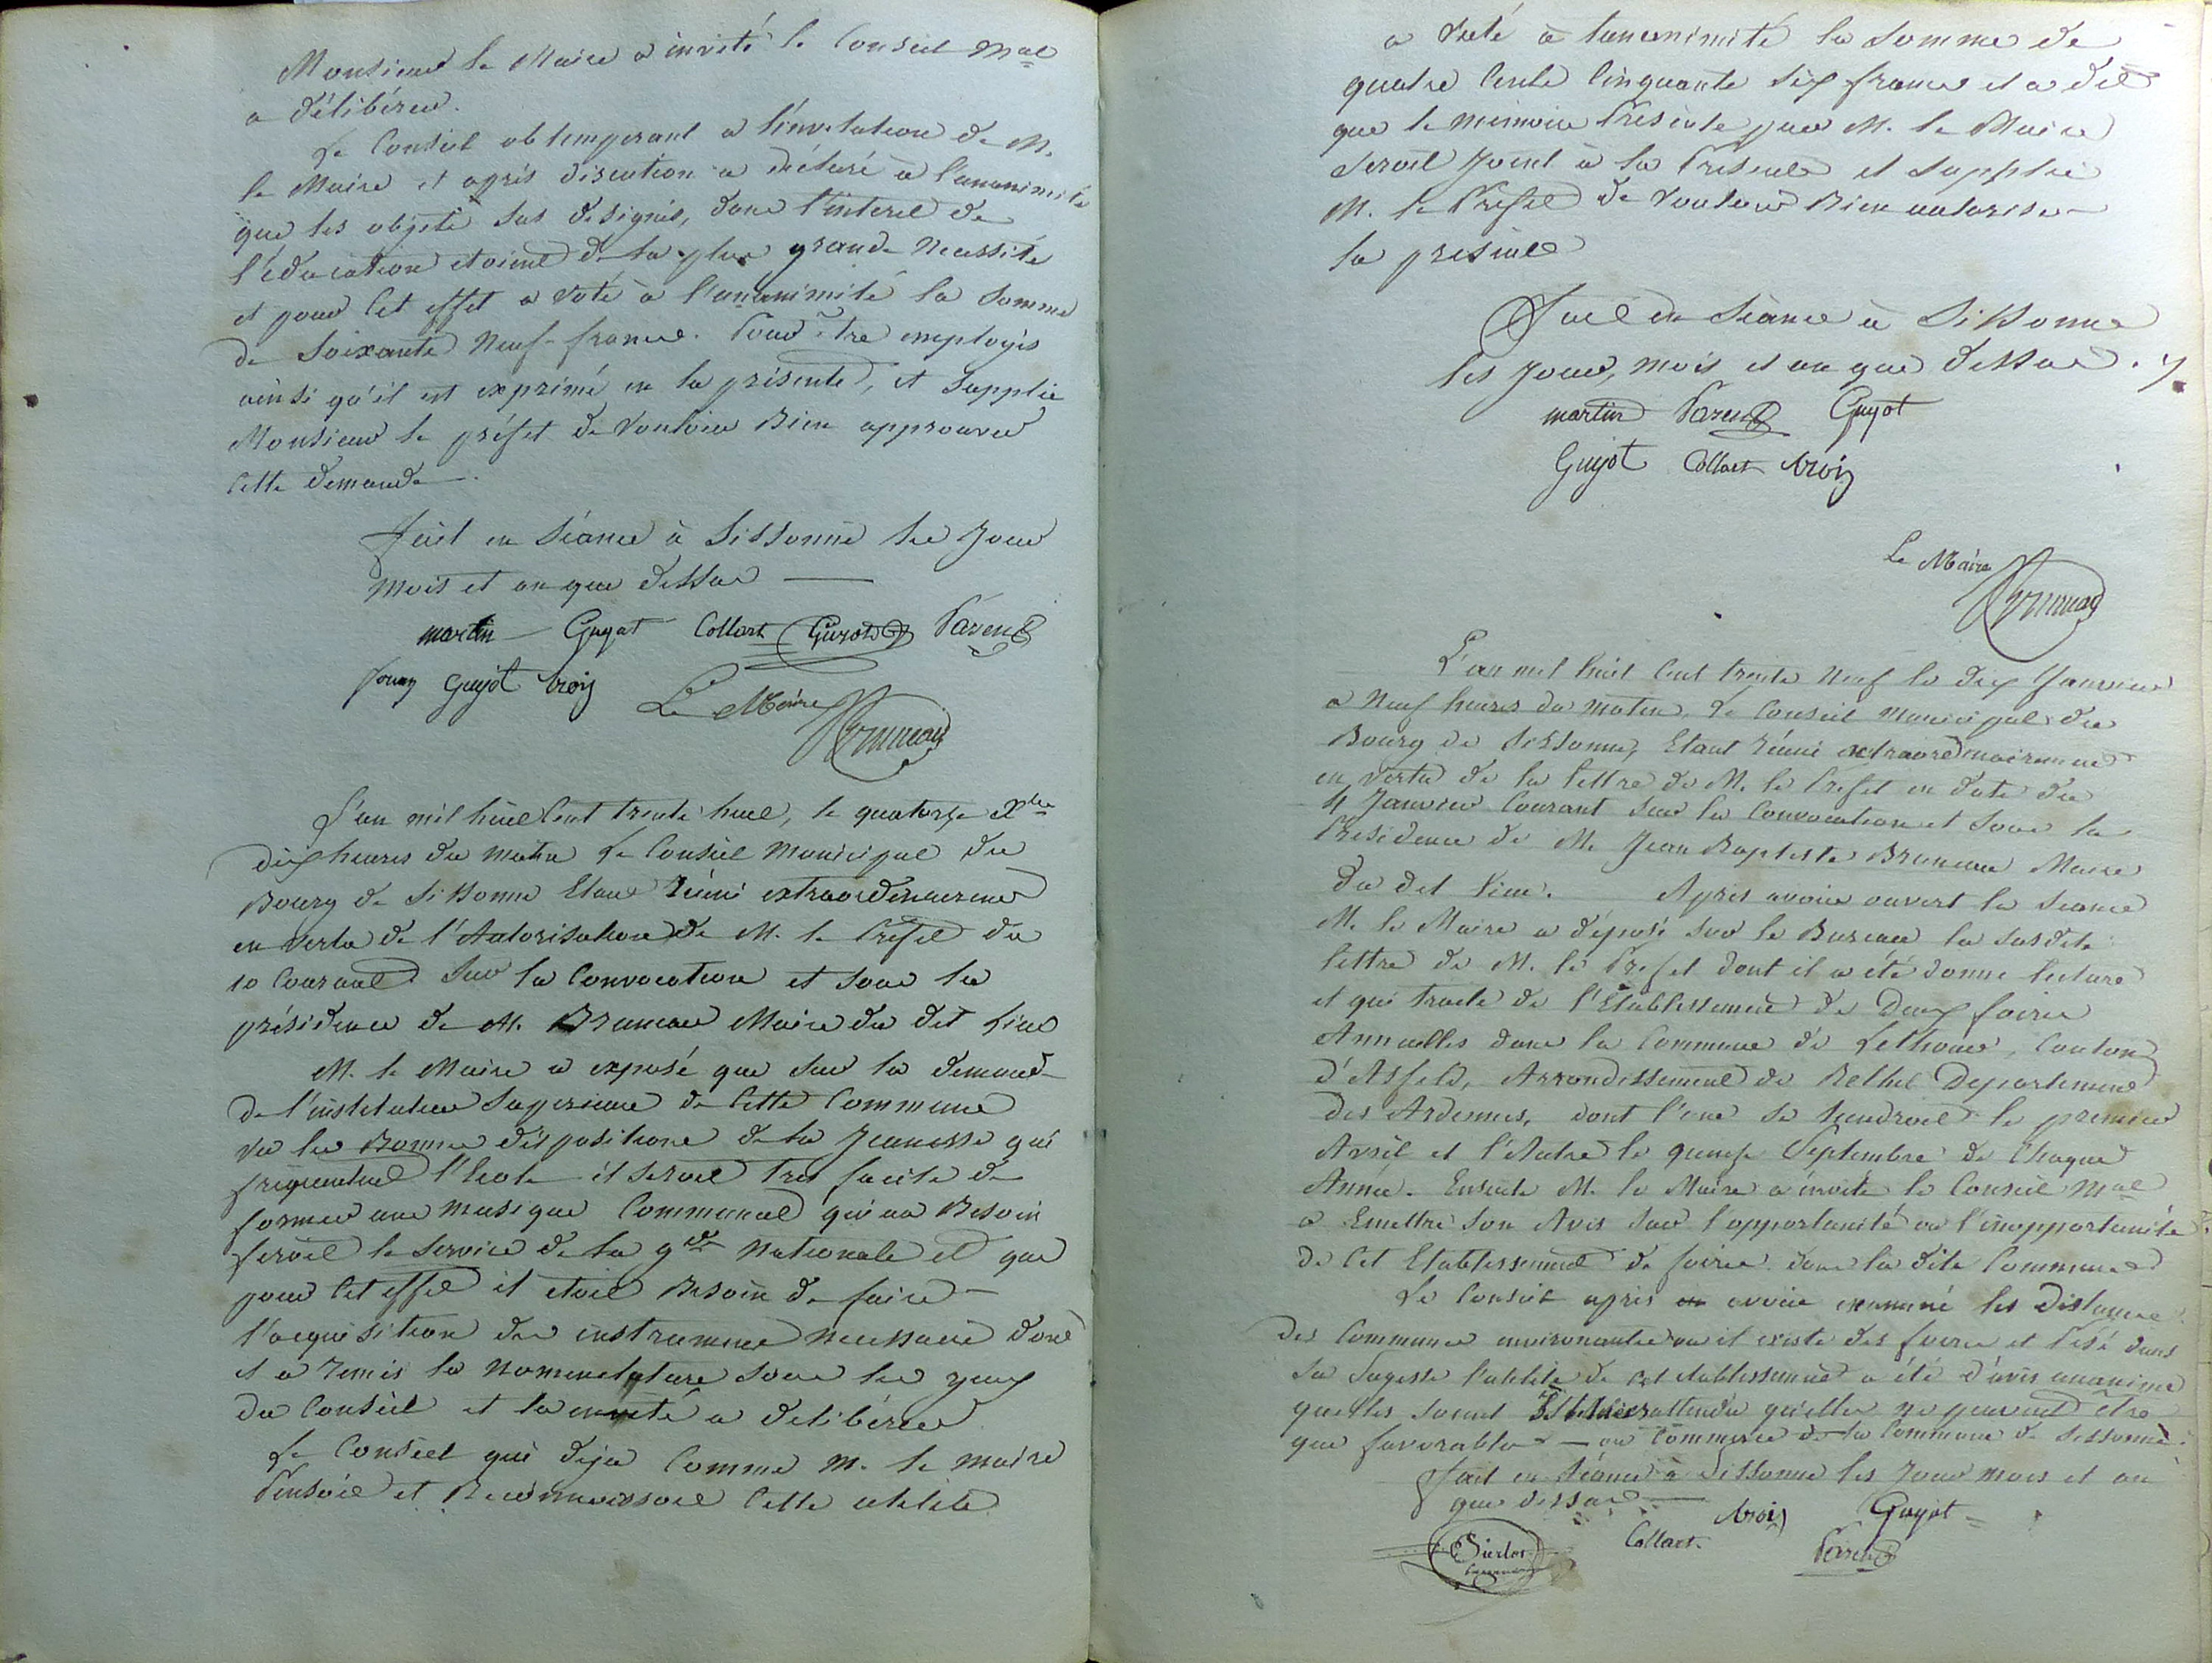 Monsieur le Maire a invité le Conseil Mal
a délibérer.
Le Conseil obtemperant a l'invitation de M.
le Maire et après discution a déclaré à l'ananimité
que les objets sus désignés, dans l'interet de
l'éducation etoient de la plus grande Necessité
et pour Cet effet a voté à l'ananimité la Somme
de Soixante Neuf francs. Pour être employés
ainsi qu'il est exprimé en la présente, et Supplie
Monsieur le préfet de Vouloir Bien approuver
Cette demande.
Fait en Séance à Sissonne les Jour
Mois et an que dessus
martin Guyot Collart Guyot Parent
Guyot troiz
Le Maire
Bruneau
L'an mil huit Cent trente huit, le quatorze Xbre
dix heures du matin Le Conseil Municipal du
Bourg de Sissonne Etant Réuni extraordinairement
en vertu de l'Autorisation de M. le Préfet du
10 Courant Sur la Convocation et sous la
présidence de M. Bruneau Maire du dit Lieu
M. le Maire a exposé que Sur la demande
de l'instituteur Superieur de Cette Commune
vu les Bonnes dispositions de la Jeunesse qui
frequentent l'Ecole il seroit tres facile de
former une musique Communal qui au Besoin
feroit le Service de la gde Nationale et que
pour Cet effet il etoit Besoin de faire
l'acquisition des instruments necessaire dont
il a remis la Nomenclature sous les yeux
du Conseil et la invité a délibérer
Le Conseil qui deja Comme M. le maire
Pensoit et Reconnoissoit Cette utilité
a Voté à lananimité la Somme de
quatre Cents Cinquante Six francs et a dit
que le Mémoire Présenté par M. le Maire
Seroit Joint à la Présente et Supplie
M. le Préfet de Vouloir Bien autoriser
la présente
Fait en Séance à Sissonne
les Jour, mois et an que dessus.
martin Parent Guyot
Guyot Collart troiz
Le Maire
Bruneau
L'an mil huit Cent trente Neuf le dix Janvier
a Neuf heures du matin, Le Conseil Municipal du
Bourg de Sissonne, Etant Réuni extraordinairement
en vertu de la lettre de M. le Préfet en date du
4 Janvier Courant Sur la Convocation et Sous la
Présidence de M. Jean Baptiste Bruneau Maire
du dit lieu. Après avoir ouvert la Seance
M. le Maire a déposé sur le Bureau la susdite
lettre de M. le Prefet dont il a été donné lecture
et qui traite de l'Etablissement de Deux foires
Annuelles dans la Commune de Lethour, Canton
d'Asfeld, Arrondissement de Rethel Departement
des Ardennes, dont l'une Se tiendroit le premier
Avril et l'Autre le quinze Septembre de Chaque
Année. Ensuite M. le Maire a invité le Conseil Mal
a Emettre Son Avis Sur l'opportunité ou l'inopportunité
de Cet Etablissement de foires dans la dite Commune
Le Conseil après avoir examiné les Distances
des Communes environantes ou il existe des foires et Pesé dans
Sa Sagesse l'utilité de Cet etablissement a été d'avis unanime
quelles soient attendu qu'elles ne peuvent être
que favorables au Commerce de la Commune de Sissonne.
Fait en Séance à Sissonne les Jour mois et an
que dessus
troiz Guyot
Collart Parent